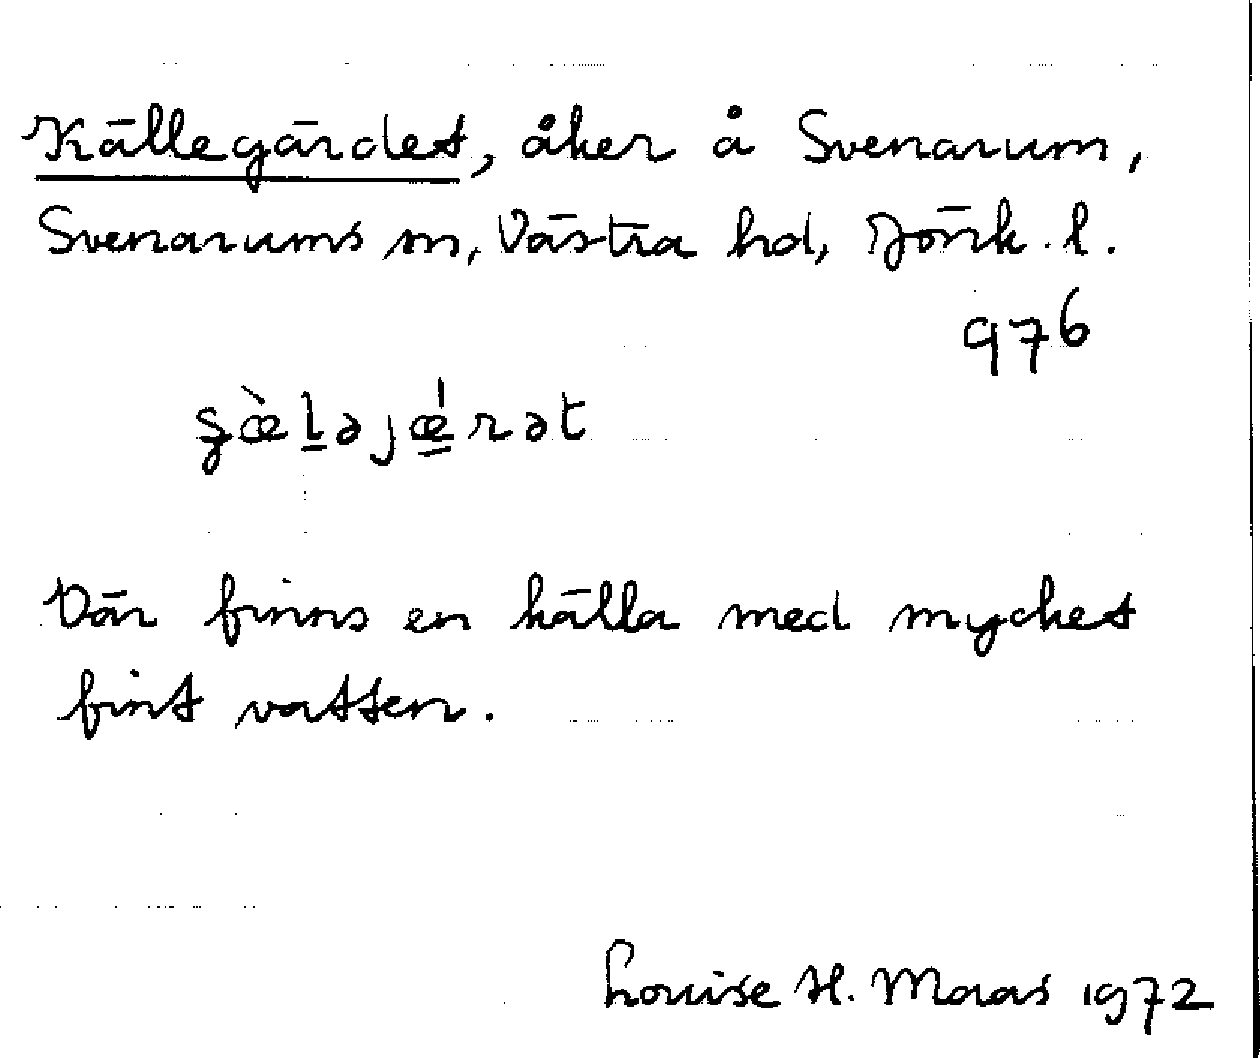 Källegärdet, åker å Svenarum,
Svenarums sn, Västra hd, Jönk. l.
976
ʂœ̀l̠əjœ̠́rət
Där finns en källa med mycket
fint vatten.
Louise H. Maas 1972